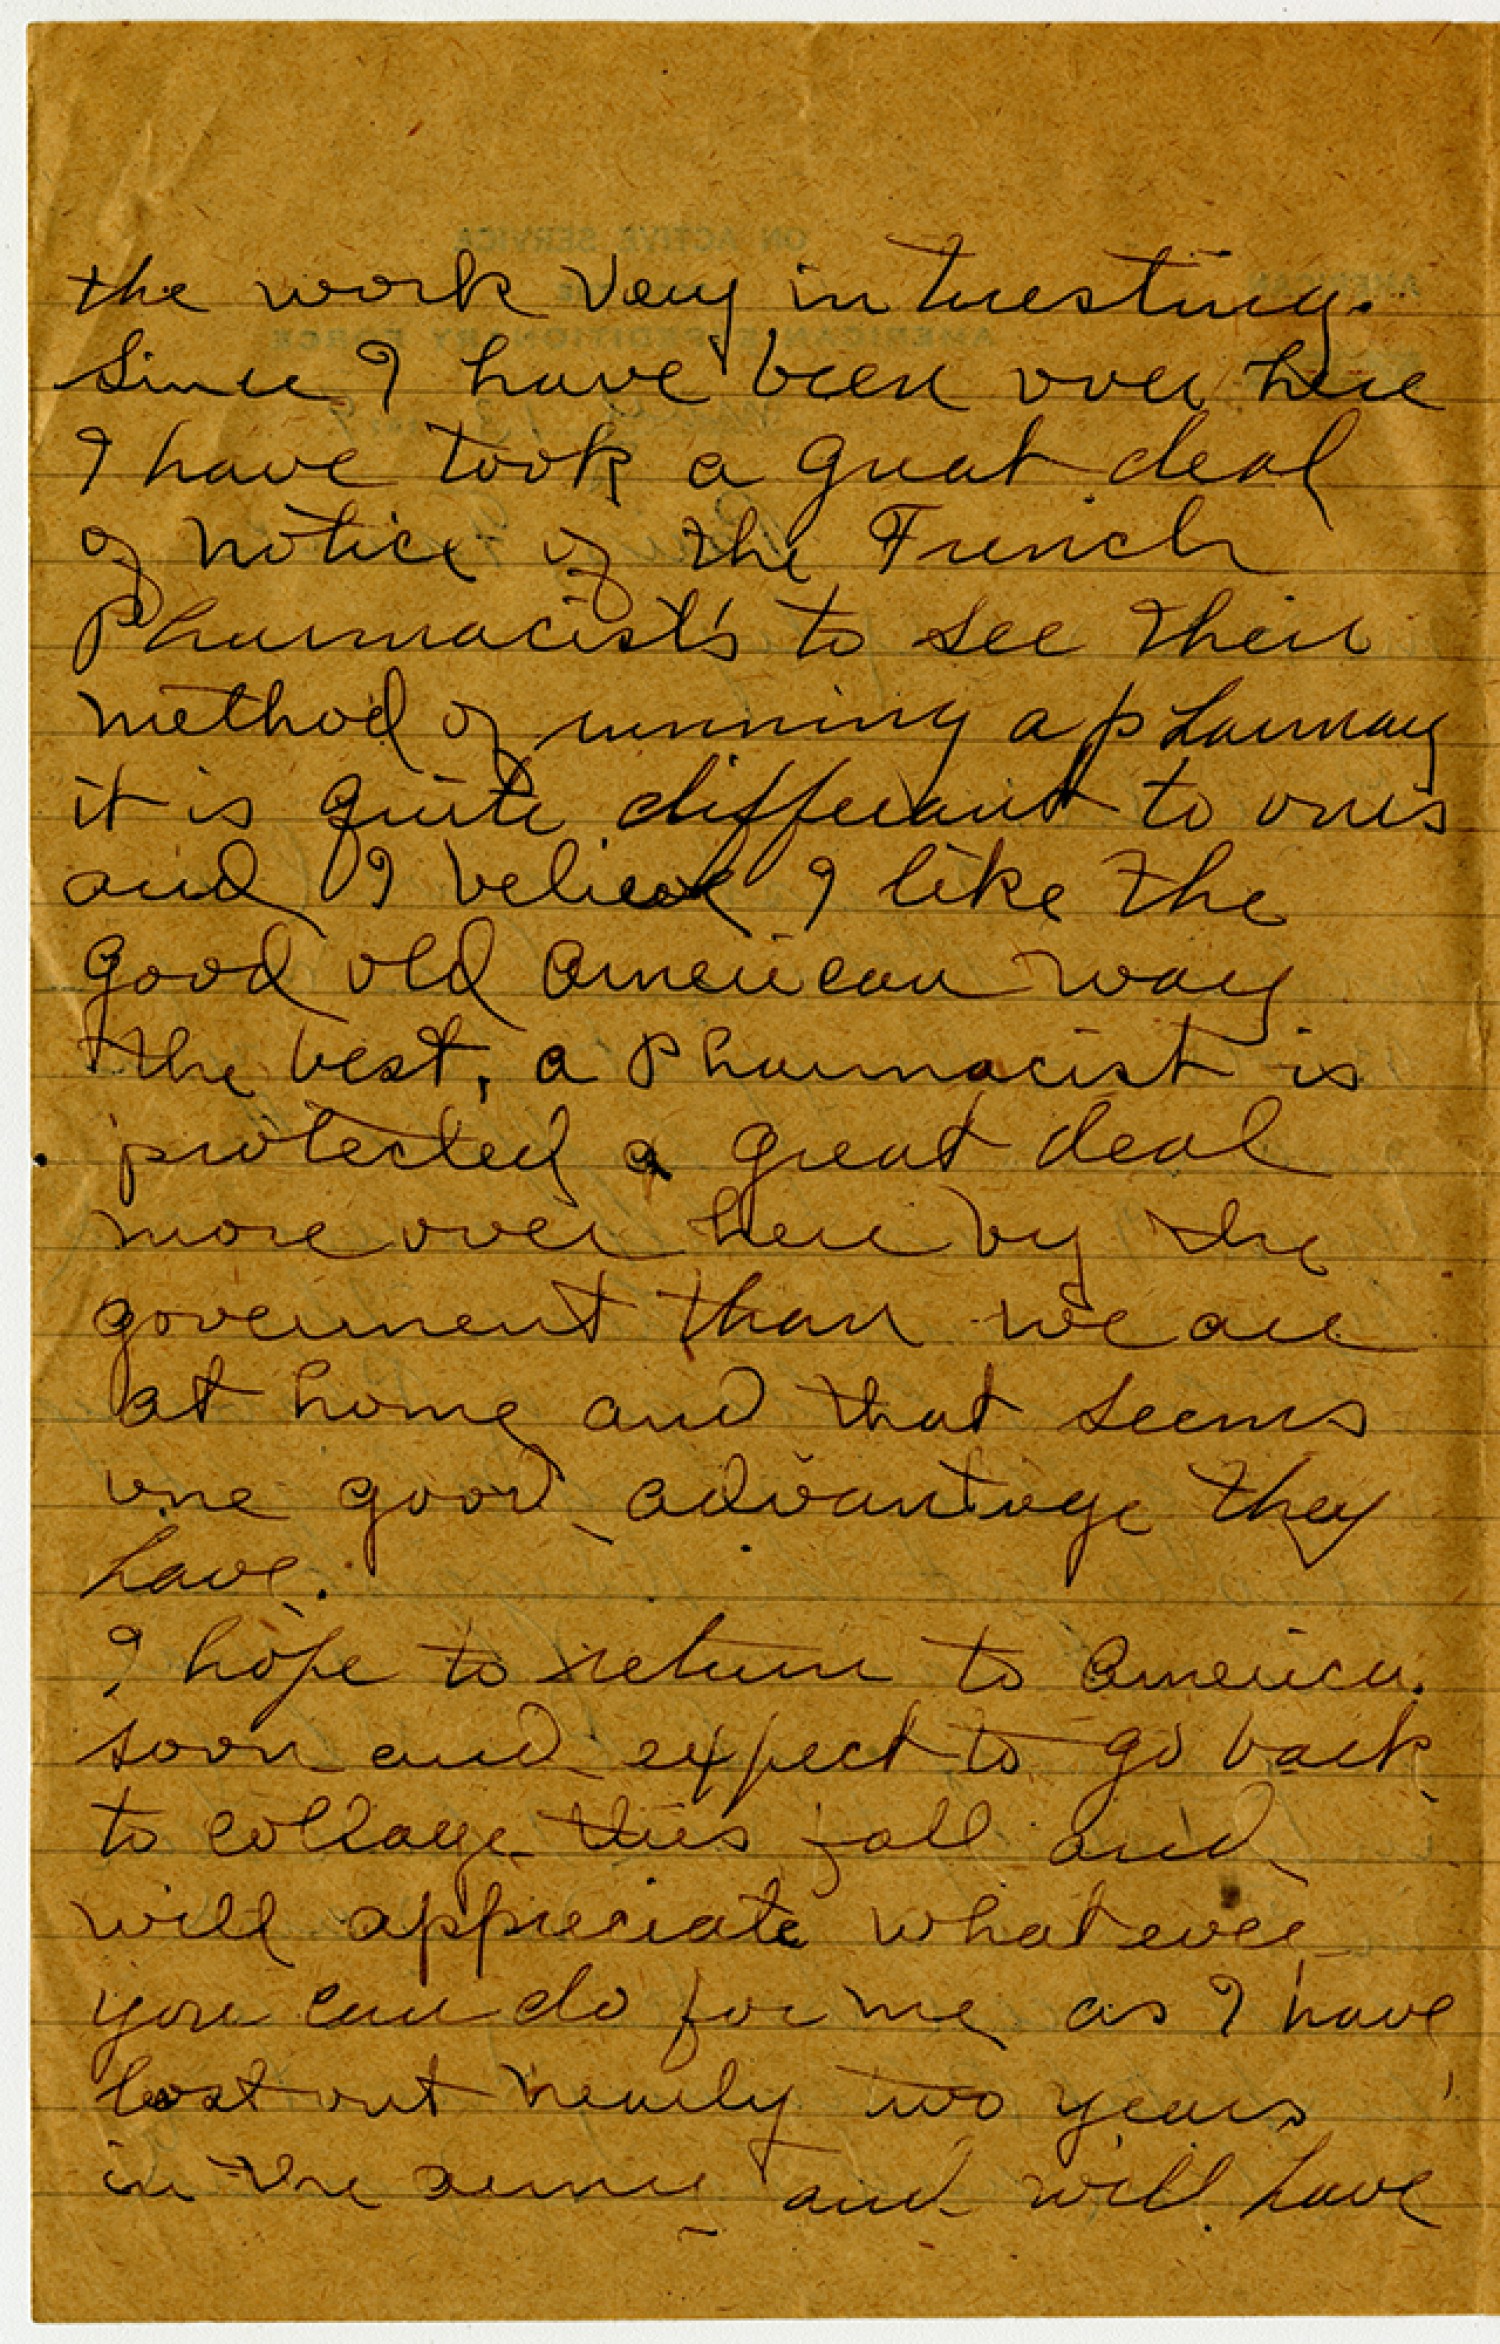 the work very intresting.
Since I have been over here
I have took a great deal
of notice of the French
Pharmacist's to see their
method of running a pharmacy
it is quite differant to ours
and I believe I like the
good old American way
the best, a Pharmacist is
protected a great deal
more over here by the
goverment than we are
at home and that seems
one good advantage they
have.
I hope to return to America.
soon and expect to go back
to collage this fall and
will appreciate whatever
you can do for me as I have
lost out nearly two years
in the army and will have
ON ACTIVE SERVICE
AMERICAN EXPEDITIONARY FORCE
AMERICAN